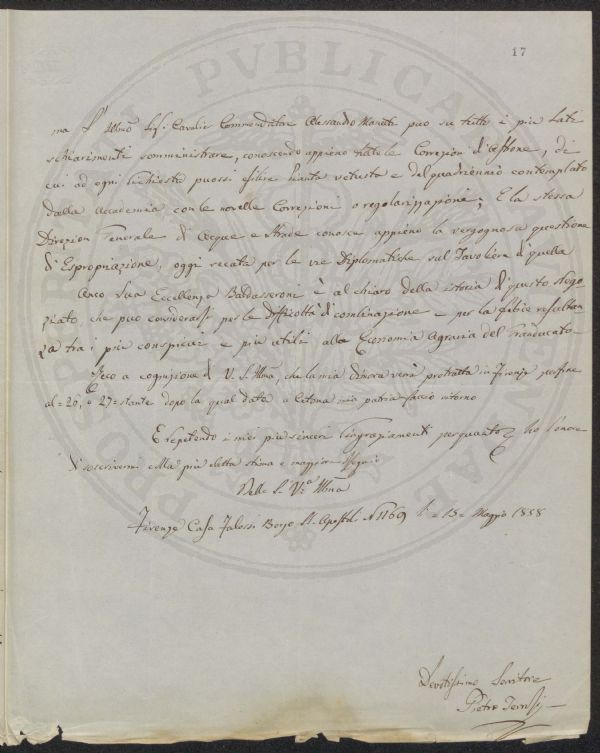 17
ma l'Illmo Sig. Cavalie Commendatore Alessandro Manetti puo su tutto i piu lati
schiarimenti somministrare, conoscendo appieno tutte le Correzioni d'Astrone, di
cui ad ogni richiesta puossi esibire Pianta vetusta e del quadriennio contemplato
dalla Accademia con le novelle Correzioni o regolarizzazioni; E la stessa
Direzion Generale di Acque e Strade conosce appieno la vergognosa questione
di Espropriazione, oggi recata per le vie Diplomatiche sul Tavoliere di quella
Anco Sua Eccellenza Baldasseroni è al chiaro della istoria di questo Nego
ziato, che può considerarsi per le difficoltà di combinazione e per la felice resultan
za tra i più conspicui e più utili alla Economia Agraria del Granducato
Reco a cognizione di V. S. Illma, che la mia dimora verrà protratta in Firenze perfine
al = 26, o 27 = stante dopo la qual data a Cetona mia patria faccio ritorno
E repetendo i miei più sinceri ringraziamenti perquanto ho l'onore
di soscrivermi colla più distta stima e maggiore ossequio
Della S. V. Illma
Firenze Casa Jalossi Borgo SS. Apostoli N 1169 li = 15 = Maggio 1858
Devotissimo Servitore
Pietro Terrosi
PVBLICA
PROSPERITATI AVGENDAE